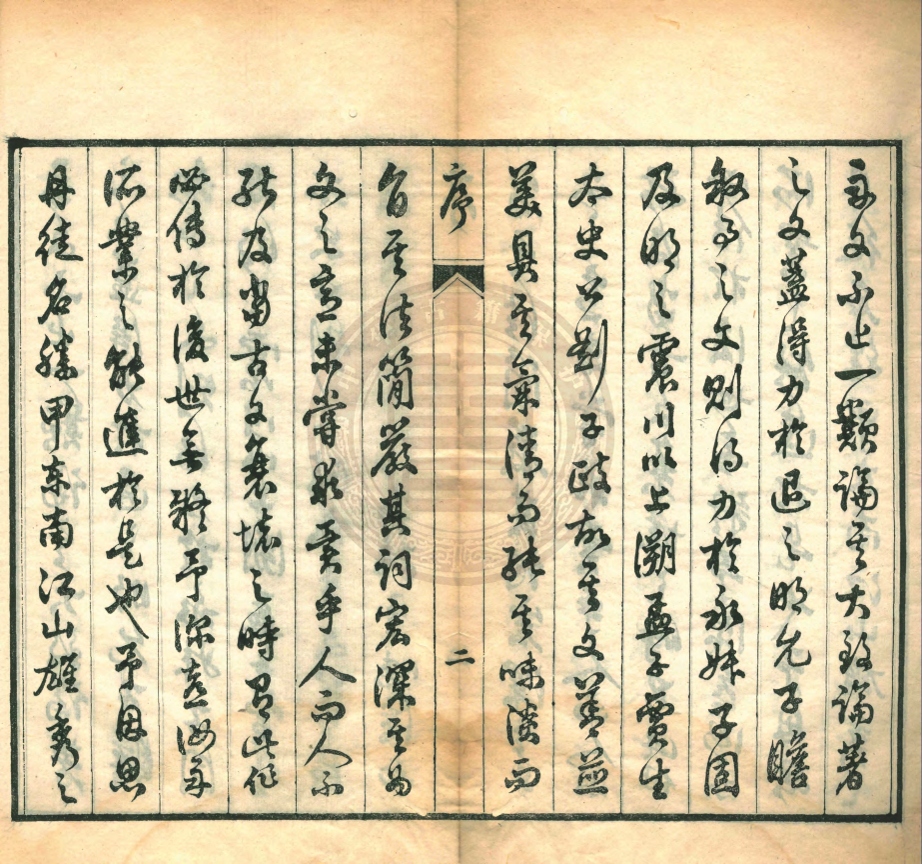 文不止一類論其大致論著
之文蓋得力於退之明允子瞻
敘事之文則得力於永叔子固
及明之震川以上溯孟子賈生
太史公劉子政故其文善並
美具其氣清而純其味淡而
序 二
旨其法簡嚴其詞宏深其為
文之意未嘗求異乎人而人不
能及當古文衰壞之時有此作
必傳於後世無疑予深喜汝
所業之能進於是也予因思
丹徒名勝甲東南江山雄秀之